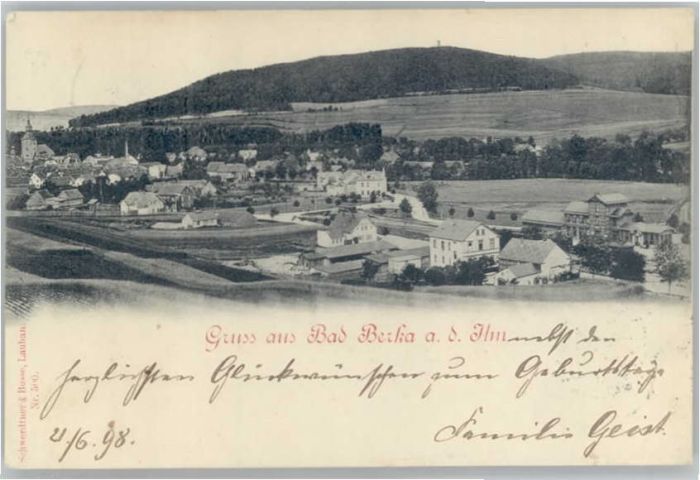 Gruss aus Bad Berka a. d. Ilm nebst den
herzlichsten Glückwünschen zum Geburtstage
21/6. 98.
Familie Geist.
Schwerdtner & Busse, Lauban.
Nr. 590.